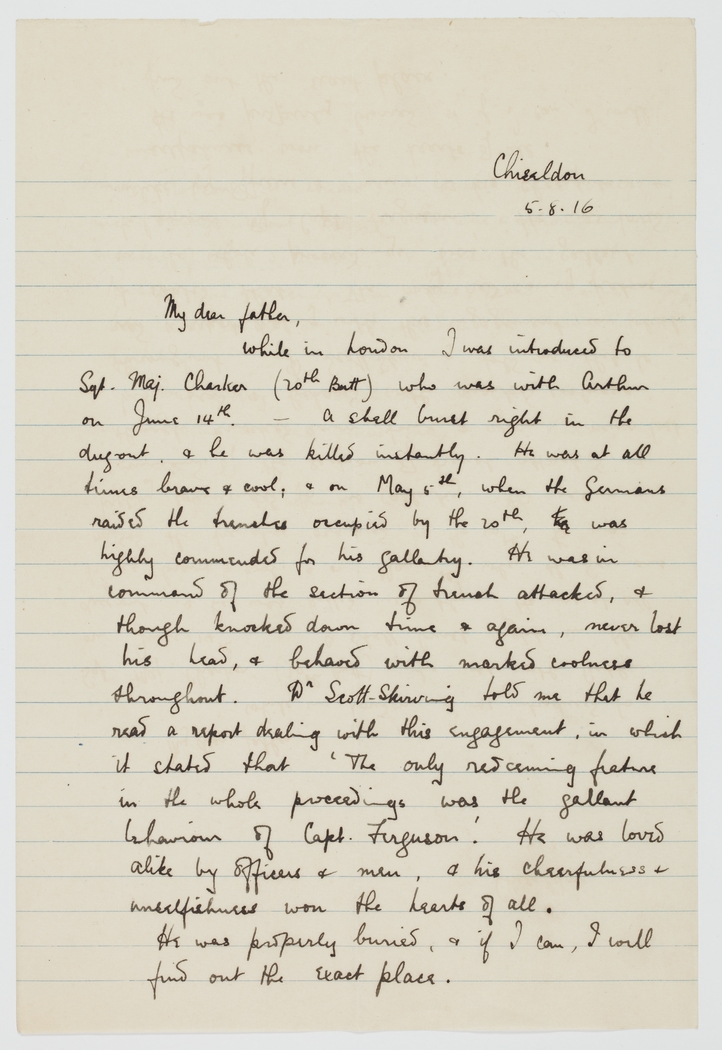 Chiseldon
5-8-16
My dear father,
while in London I was introduced to
Sgt. Maj. Charker (20th Batt) who was with Arthur
on June 14th. — A shell burst right in the
dug-out, & he was killed instantly. He was at all
times brave & cool; & on May 5th, when the Germans
raided the trenches occupied by the 20th, he was
highly commended for his gallantry. He was in
command of the section of trench attacked, &
though knocked down time & again, never lost
his head, & behaved with marked coolness
throughout. Dr Scott-Skirving told me that he
read a report dealing with this engagement, in which
it stated that 'The only redeeming feature
in the whole proceedings was the gallant
behaviour of Capt. Ferguson'. He was loved
alike by officers & men, & his cheerfulness &
unselfishness won the hearts of all.
He was properly buried, & if I can, I will
find out the exact place.